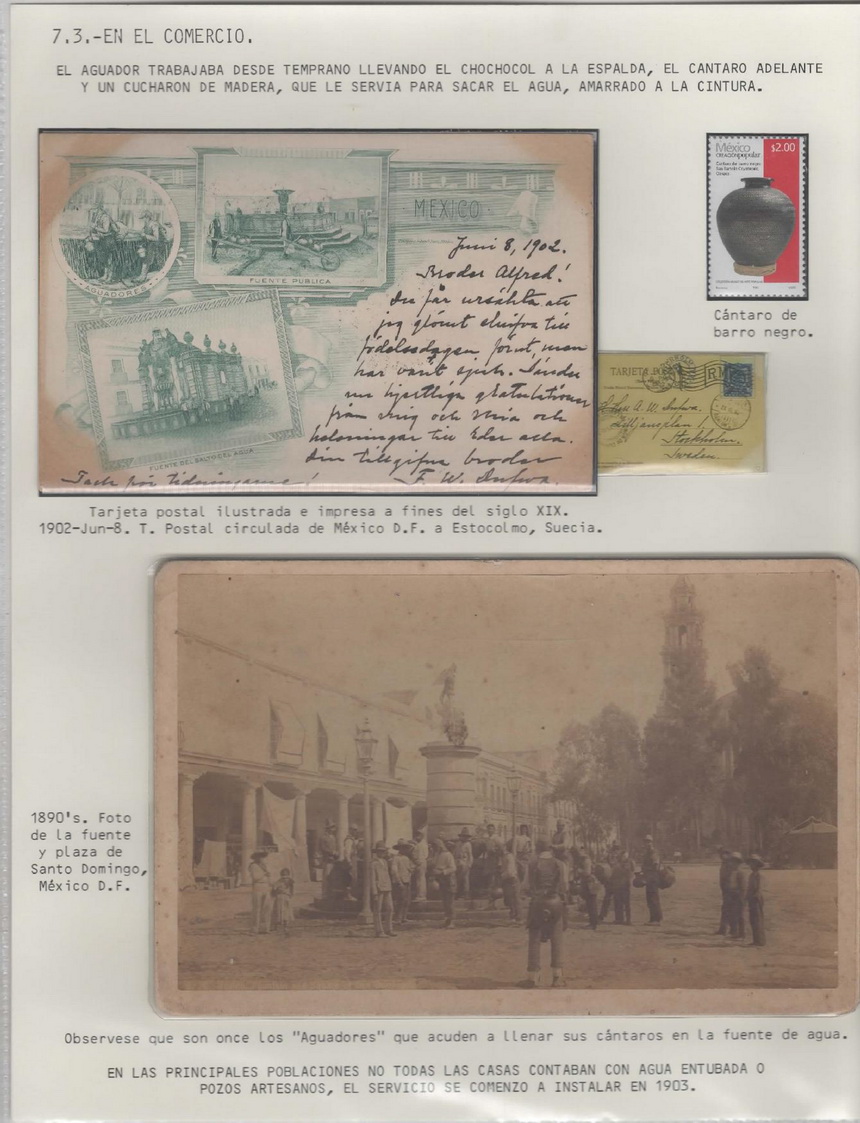 7.3.-EN EL COMERCIO.
EL AGUADOR TRABAJABA DESDE TEMPRANO LLEVANDO EL CHOCHOCOL A LA ESPALDA, EL CANTARO ADELANTE
Y UN CUCHARON DE MADERA, QUE LE SERVIA PARA SACAR EL AGUA, AMARRADO A LA CINTURA.
AGUADORES
FUENTE PUBLICA
MEXICO
FUENTE DEL SALTO DEL AGUA
Juni 8, 1902.
Broder Alfred!
Du får ursäkta att
jag glömt skrifva till
födelsedagen förut men
har varit
hjertliga gratulationer
från mig och Mia och
helsningar till Eder alla.
Din tillgifne broder
F. W.
Tack för tidningarne!
México
creaciónpopular
$2.00
Cántaro de
barro negro.
TARJETA
A. W.
Lilljansplan 1
Stockholm.
Sweden.
Tarjeta postal ilustrada e impresa a fines del siglo XIX.
1902-Jun-8. T. Postal circulada de México D.F. a Estocolmo, Suecia.
1890's. Foto
de la fuente
y plaza de
Santo Domingo,
México D.F.
Observese que son once los "Aguadores" que acuden a llenar sus cántaros en la fuente de agua.
EN LAS PRINCIPALES POBLACIONES NO TODAS LAS CASAS CONTABAN CON AGUA ENTUBADA O
POZOS ARTESANOS, EL SERVICIO SE COMENZO A INSTALAR EN 1903.